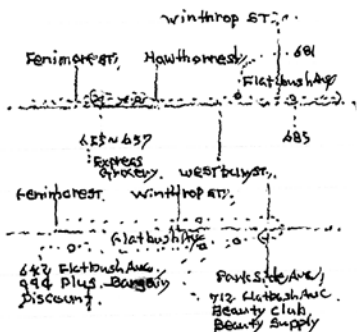 Winthrop ST.
Fenimore ST.
Hawthorne ST.
681
Flatbush Ave
655~657
Express
Grocery
685
Westbury ST.
Fenimore ST.
Winthrop ST.
Flatbush Ave
642 Flatbush Ave
99¢ Plus Bargain
Discount
Parkside Ave
712 Flatbush Ave.
Beauty Club
Beauty Supply